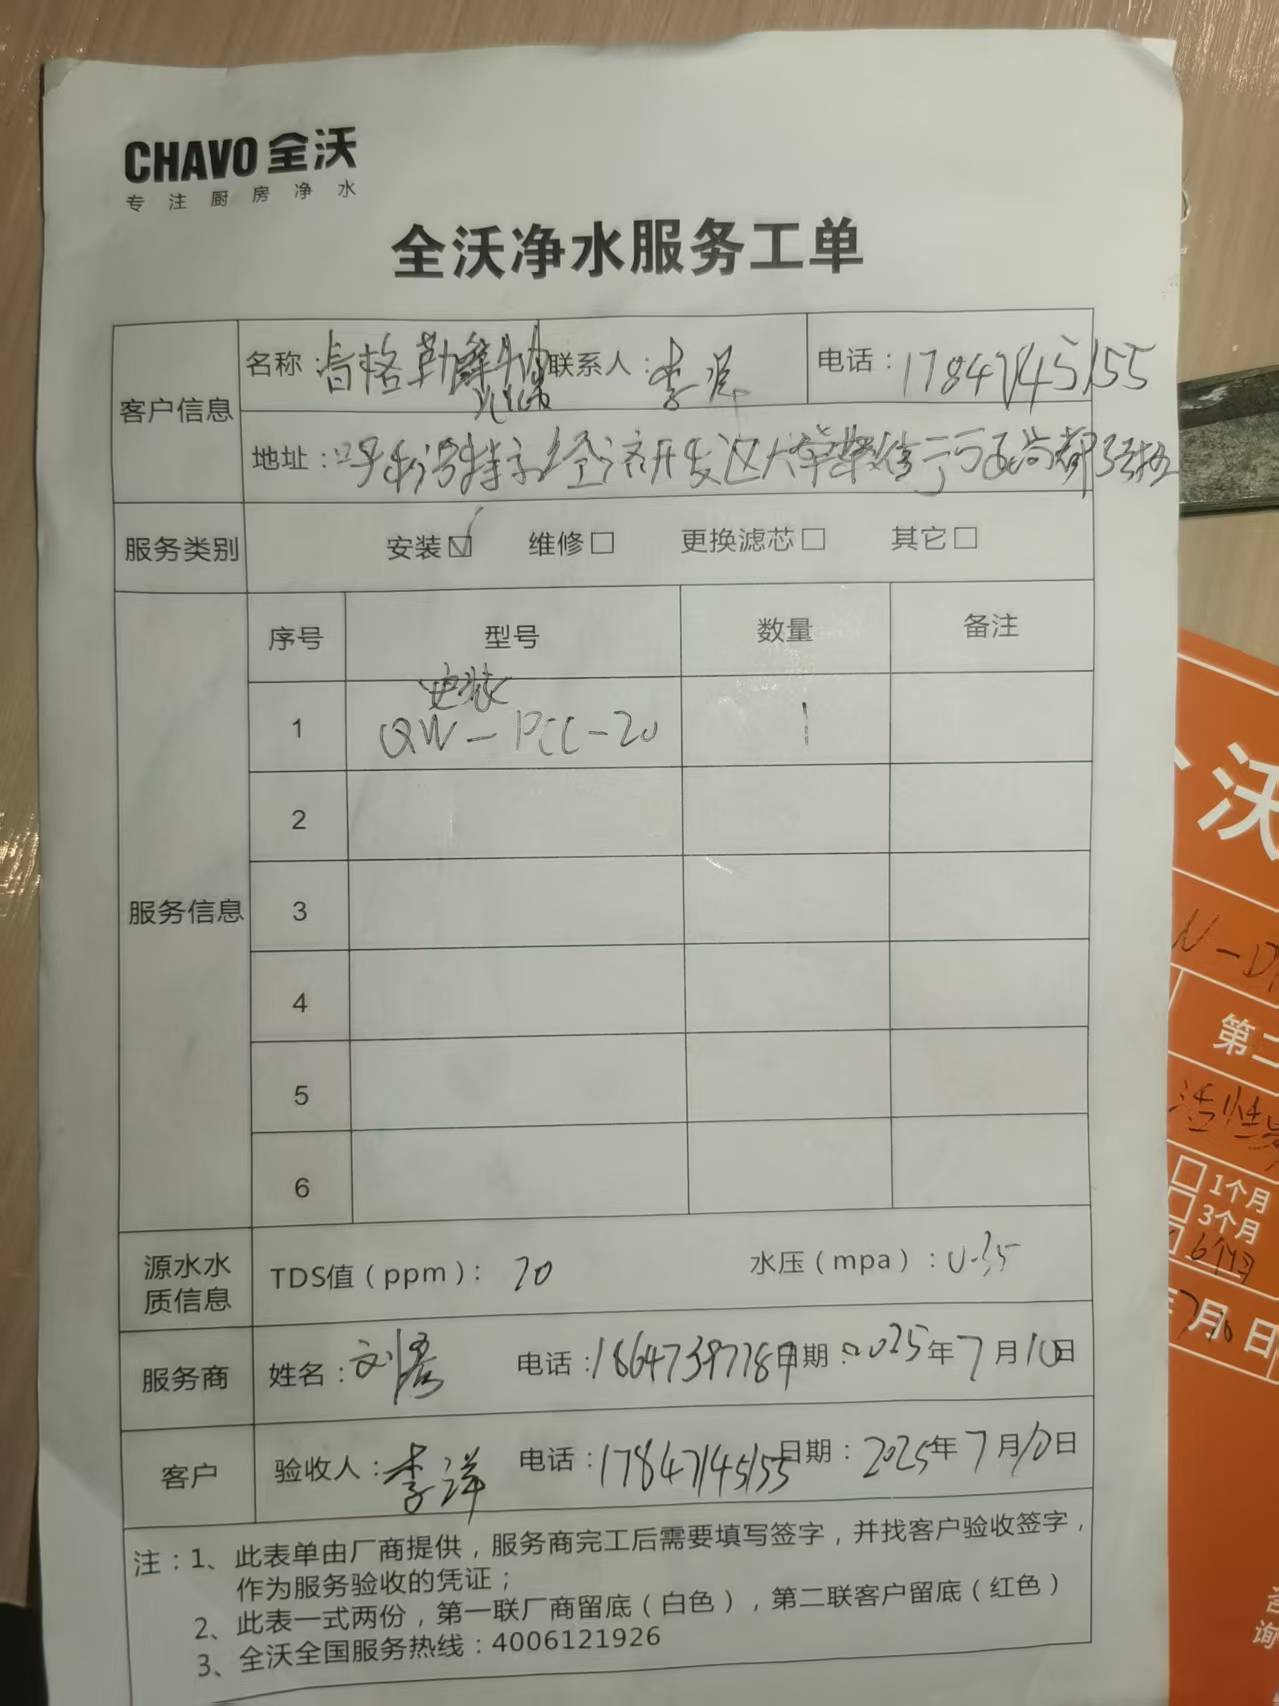 CHAVO 全沃
专注厨房净水
全沃净水服务工单
客户信息
名称： 格勒 联系人：李洋 电话：17847145155
地址： 经济开发区
服务类别 安装☑ 维修☐ 更换滤芯☐ 其它☐
服务信息
序号 型号 数量 备注
安装
1 QW-PCC-20 1
2
3
4
5
6
源水水质信息 TDS值（ppm）： 20 水压（mpa）：0.35
服务商 姓名：刘 电话： 日期：2025年7月10日
客户 验收人：李洋 电话：17847145155 日期：2025年7月10日
注：1、此表单由厂商提供，服务商完工后需要填写签字，并找客户验收签字，
作为服务验收的凭证；
2、此表一式两份，第一联厂商留底（白色），第二联客户留底（红色）
3、全沃全国服务热线：4006121926
沃
第二
活性
☐1个月
☐3个月
6个月
7月10日
询